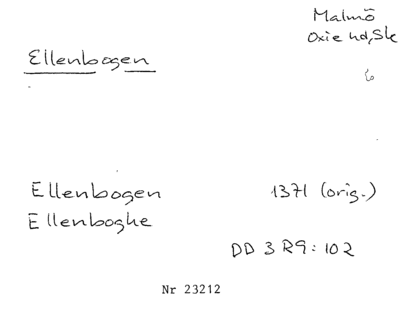 Malmö
Oxie hd, Sk
Ellenbogen
Ellenbogen 1371 (orig.)
Ellenboghe
DD 3 R9: 102
Nr 23212